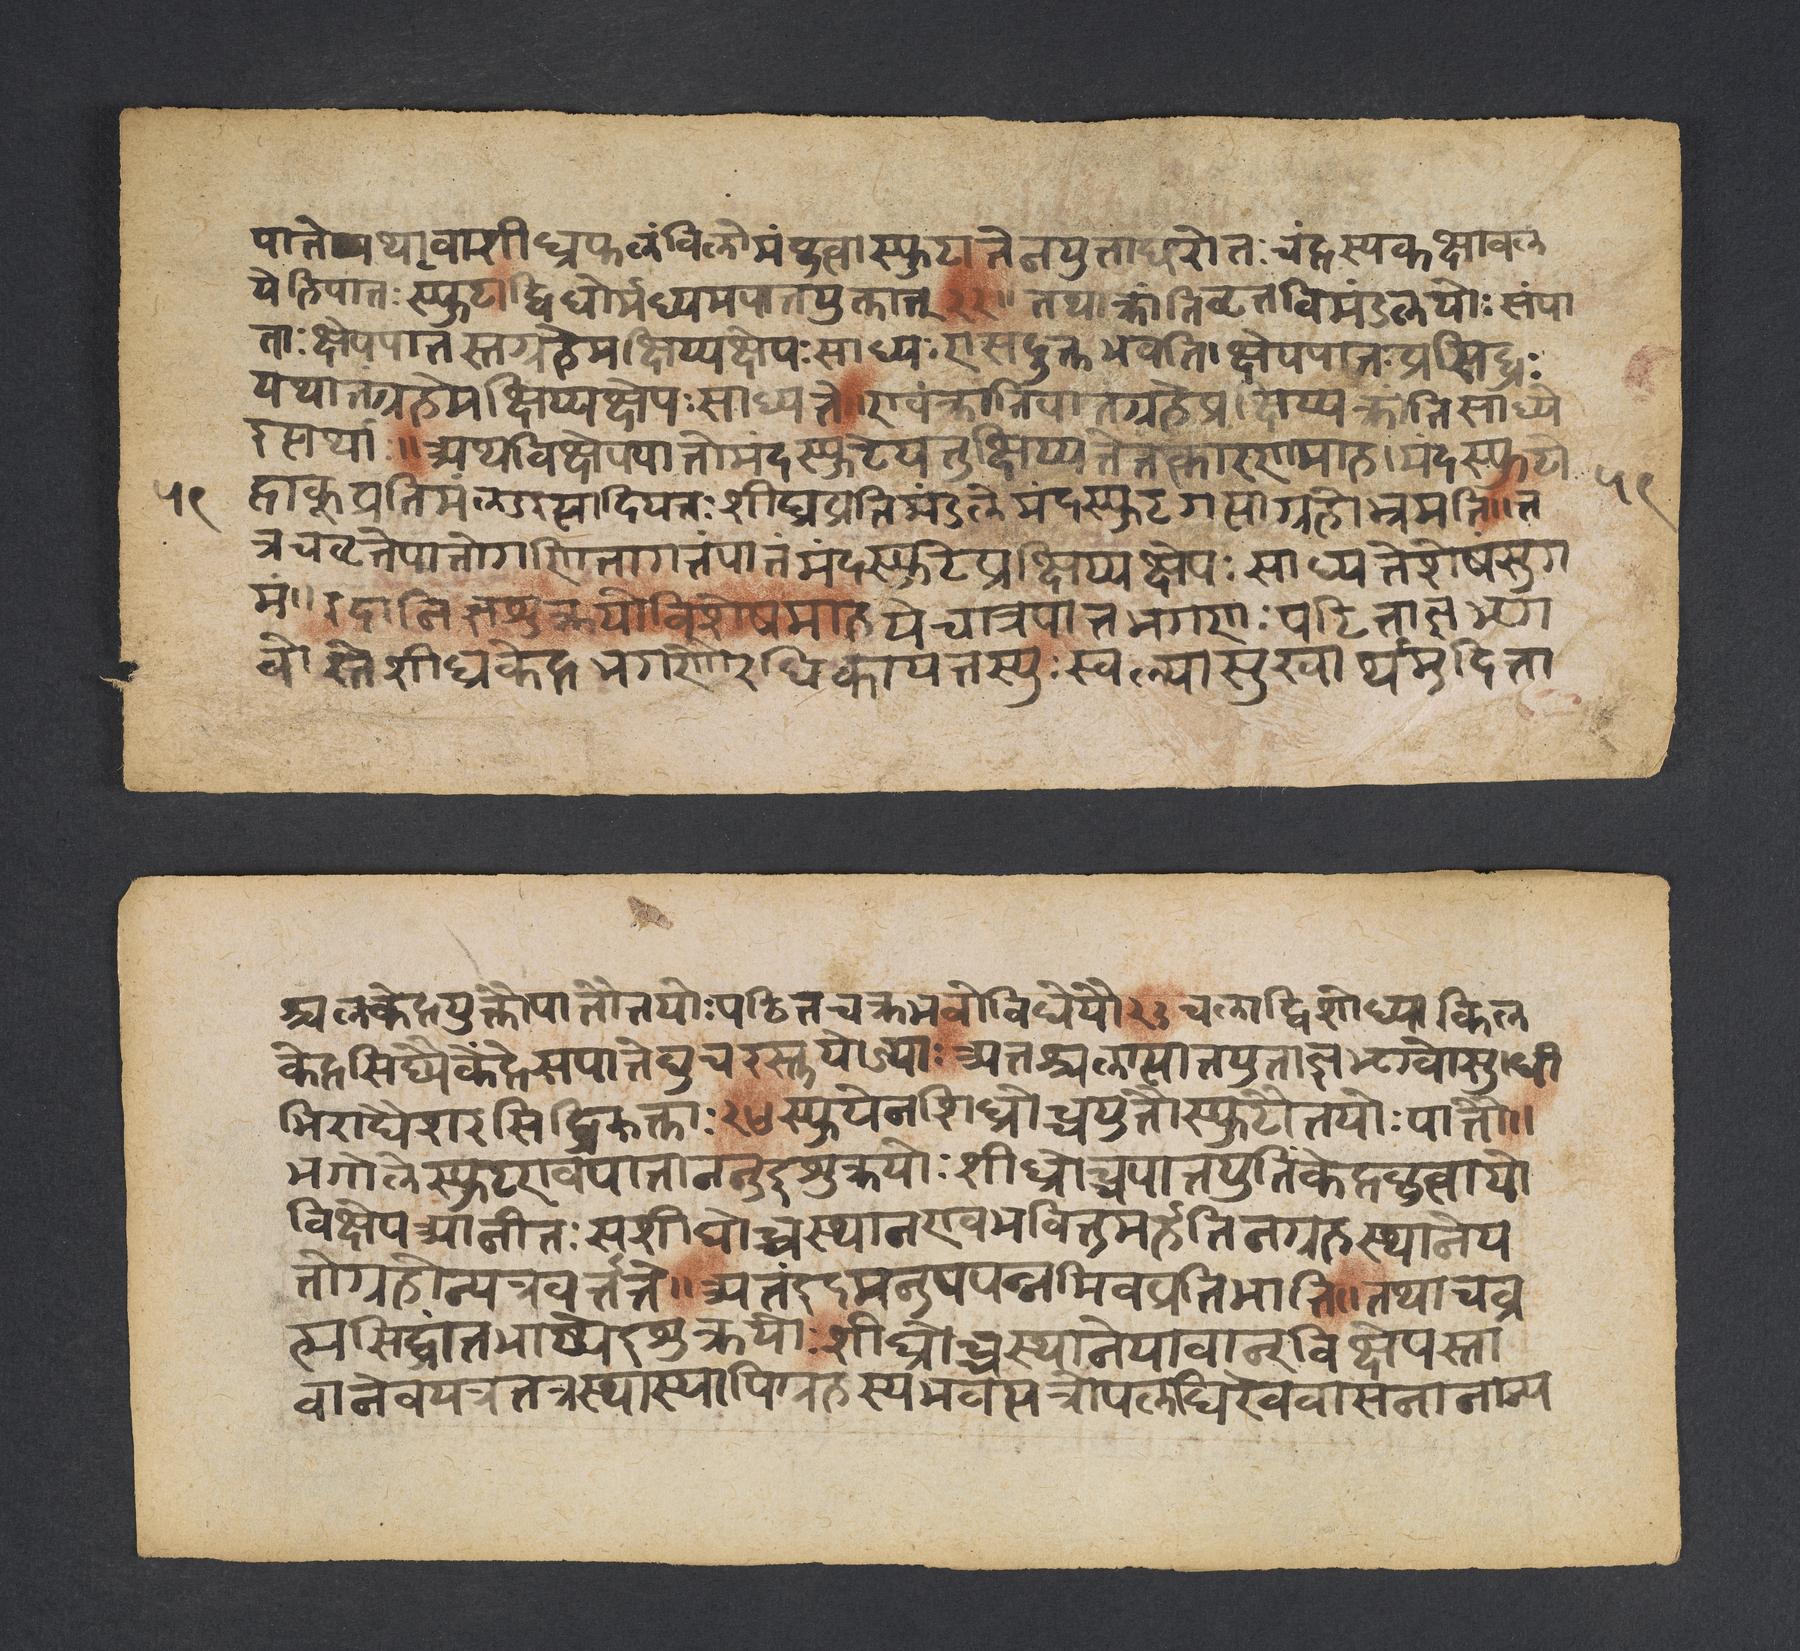 पातेऽयथावाशीघ्रफलंविलोमंकृत्वास्फुटातेनयुताद्घरोतःचंद्रस्यकक्षावल
येतिपातःस्फुटाद्विधोर्मध्यमपातयुक्तात् २२॥ तथाक्रांतिवृत्तविमंडलयोःसंपा
ताःक्षेपपातस्तग्रहेमक्षिप्यक्षेपःसाध्यःएासदुक्तभवति।क्षेपपातःप्रसिद्धः
यथातंग्रहेमक्षिप्यक्षेपःसाध्यते॥एवंक्रांतिपातग्रहेप्रक्षिप्यक्रांतिसाध्ये
इत्यर्थाः॥अथविक्षेपपातोमंदस्फुटेयत्तुक्षिप्यतेतत्कारणमाह।मंदस्फुटो
द्राक्प्रतिमंलउत्यादियतःशीघ्रप्रतिमंडलेमंदस्फुटगत्याग्रहोभ्रमति॥त
त्रचवृत्तेपातोगणितागतंपातंमंदस्फुटेप्रक्षिप्यक्षेपःसाध्यतेशेषंसुग
मं॥इदानिज्ञशुक्रयोविशेषमाहयेचात्रपातभगणाःपठिताज्ञभृग्
वोस्तेशीघ्रकेंद्रभगणैरधिकायतस्युःस्वल्पासुखार्थमुदिता
श्चलकेंद्रयुक्तौपातौतयोःपठितचक्रभवोविधेयौ२३चलाद्विशोध्यकिल
केंद्रसिध्यैकेंद्रेसपातेद्युचरस्तुयोज्याःअतश्चलात्पातयुताज्ञभृग्वोसुधी
भिराद्यैःशरसिद्धिरुक्ताः२४स्फुयेनशिघ्रोच्चयुतौस्फुटौतयोःपातौ॥
भगोलेस्फुटएवपातोननुज्ञशुक्रयोःशीघ्रोच्चपातयुतिंकेंद्रकृत्वायो
विक्षेपआनीतःसशीघोच्चस्थानएवभवितुमर्हतिनग्रहस्थानेय
तोग्रहोन्यत्रवर्त्तते॥अतंइदमनुपपन्नमिवप्रतिभाति॥तथाचब्र
ह्मसिद्धांतभाष्येज्ञशुक्रयोःशीघ्रोच्चस्थानेयावान्विक्षेपस्ता
वानेवयत्रतत्रस्थास्यापिग्रहस्यभवत्यत्रोपलघिरेववासनानान्य
५१
५१